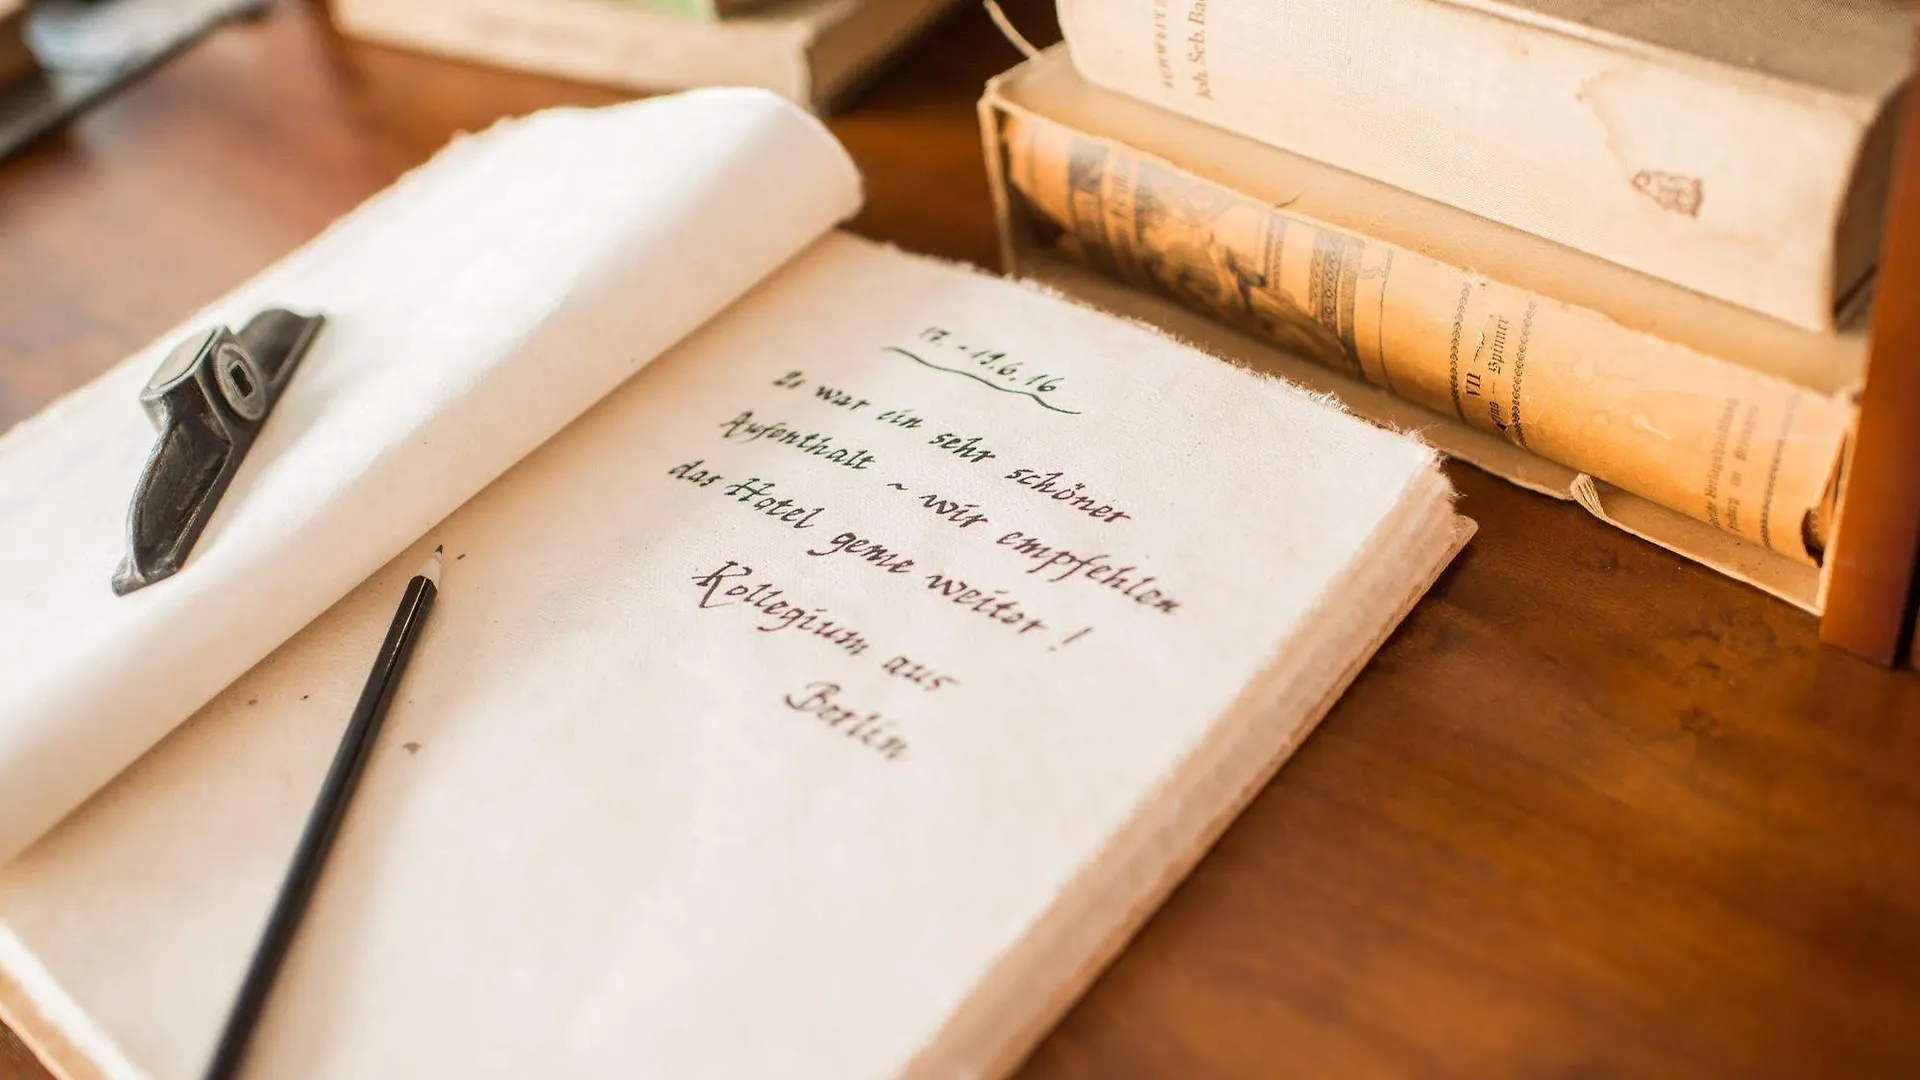 17. - 19.6.16
Es war ein sehr schöner
Aufenthalt ~ wir empfehlen
das Hotel gerne weiter!
Kollegium aus
Berlin
SCHWEITZ
Joh. Seb. Ba
VII
Spinner